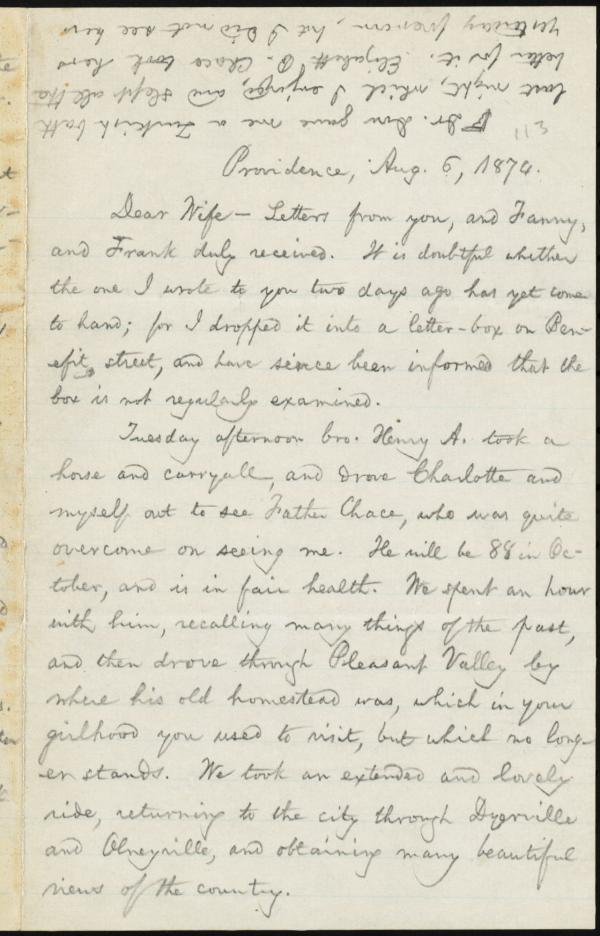 Dr. Dow gave me a Turkish bath
last night, which I enjoyed, and slept all the
better for it. Elizabeth B. Chace took hers
yesterday forenoon, but I did not see her.
Providence, Aug. 6, 1874.
Dear Wife — Letters from you, and Fanny,
and Frank duly received. It is doubtful whether
the one I wrote to you two days ago has yet come
to hand; for I dropped it into a letter-box on Ben-
efit street, and have since been informed that the
box is not regularly examined.
Tuesday afternoon bro. Henry A. took a
horse and carryall, and drove Charlotte and
myself out to see Father Chace, who was quite
overcome on seeing me. He will be 88 in Oc-
tober, and is in fair health. We spent an hour
with him, recalling many things of the past,
and then drove through Pleasant Valley by
where his old homestead was, which in your
girlhood you used to visit, but which no long-
er stands. We took an extended and lovely
ride, returning to the city through Dyerville
and Olneyville, and obtaining many beautiful
views of the country.